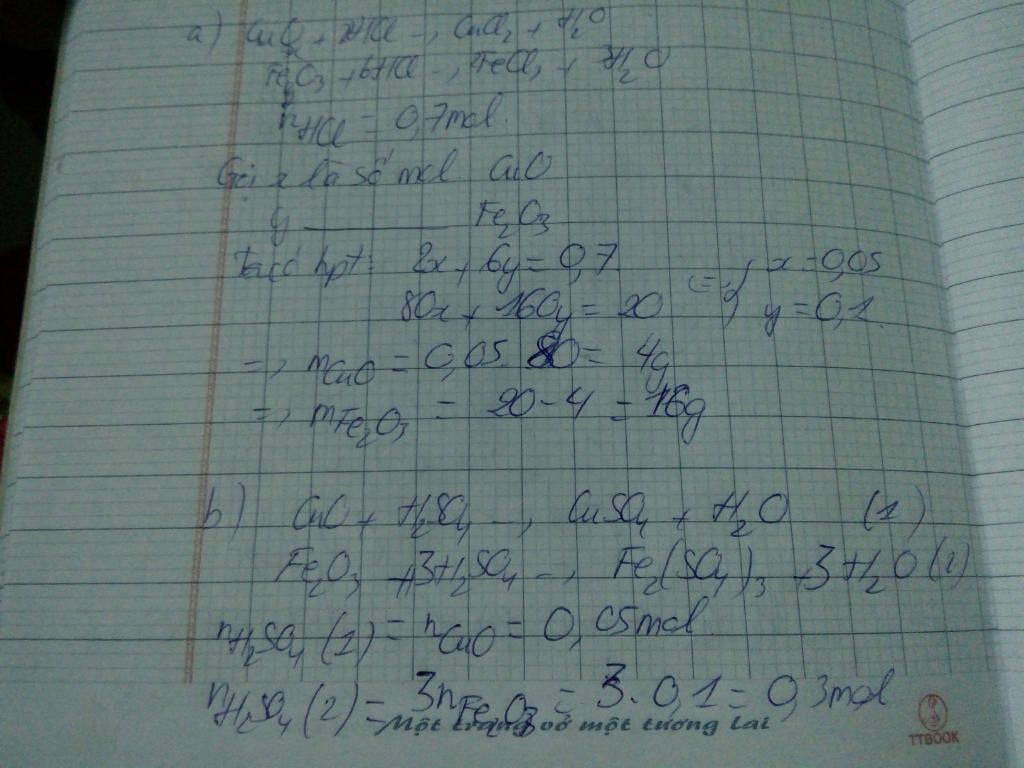 a) CuO + 2HCl -, CuCl2 + H2O
Fe2O3 + 6HCl -, 2FeCl3 + 3H2O
nHCl = 0,7mol
Gọi x là số mol CuO
y ________ Fe2O3
Ta có hpt: 2x + 6y = 0,7
80x + 160y = 20
<=> x = 0,05
y = 0,1
=> mCuO = 0,05. 80 = 4g
=> mFe2O3 = 20 - 4 = 16g
b) CuO + H2SO4 -, CuSO4 + H2O (1)
Fe2O3 + 3H2SO4 -, Fe2(SO4)3 + 3H2O (2)
nH2SO4 (1) = nCuO = 0,05mol
nH2SO4 (2) = 3nFe2O3 = 3. 0,1 = 0,3mol
Một trang vở một tương lai
TTBOOK